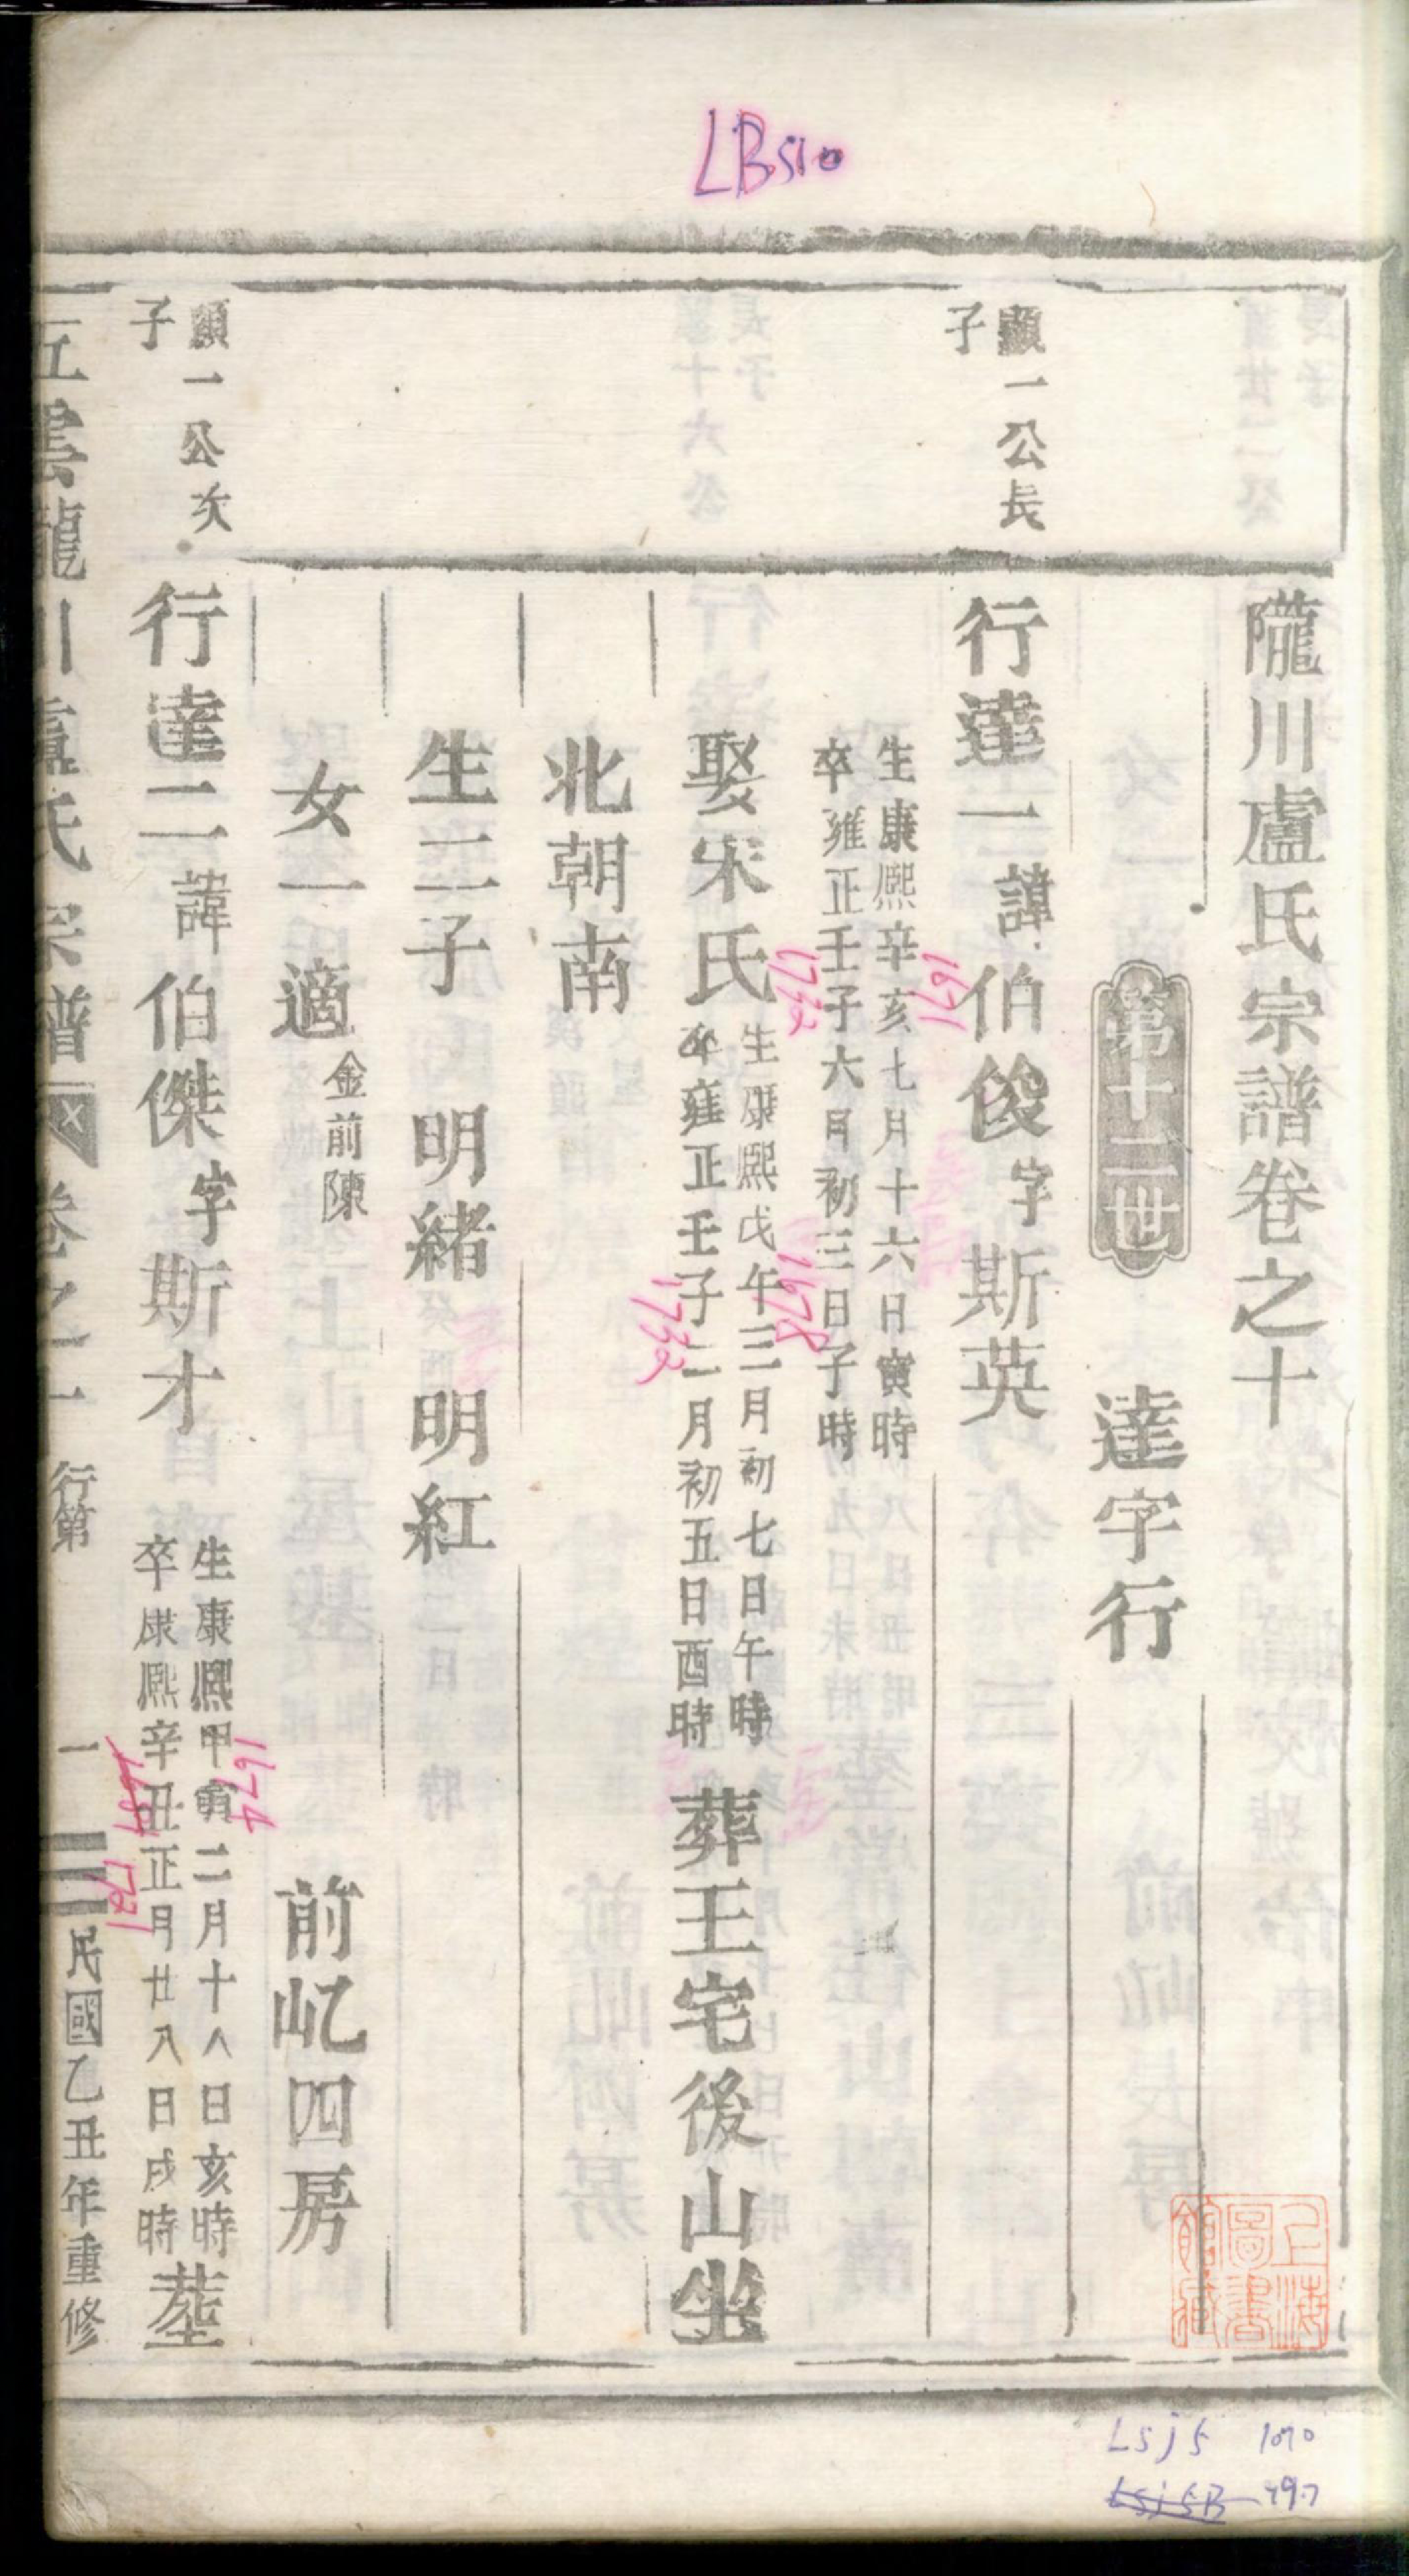 LB510
隴川盧氏宗譜卷之十
第十二世 達字行
顯一公長子
行達一諱伯俊字斯英
生康熙辛亥七月十六日寅時
卒雍正壬子六月初三日子時
1671
1732
娶宋氏
生康熙戊午三月初七日午時
卒雍正壬子二月初五日酉時
1678
1732
葬王宅後山坐
北朝南
生二子 明緒 明紅
女一適金前陳 前屹四房
顯一公次子
行達二諱伯傑字斯才
生康熙甲寅二月十八日亥時
卒康熙辛丑正月廿八日戌時
1674
1721
塟
五雲龍川盧氏宗譜 卷之一 行第 一 民國乙丑年重修
上海圖書館藏
Lsj5 1070
Lsj5B 797